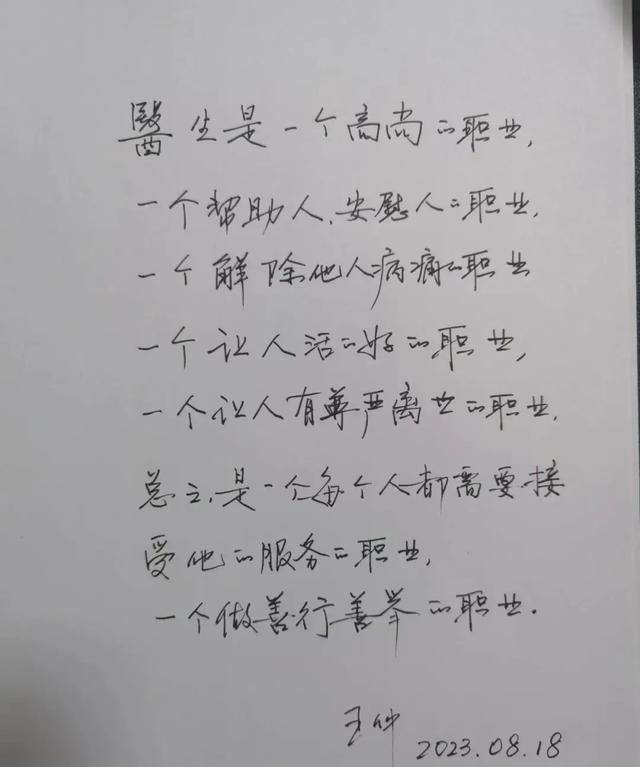 醫生是一个高尚的职业，
一个帮助人、安慰人的职业，
一个解除他人病痛的职业
一个让人活的好的职业，
一个让人有尊严离世的职业，
总之，是一个每个人都需要接
受他的服务的职业，
一个做善行善举的职业.
王仲
2023.08.18